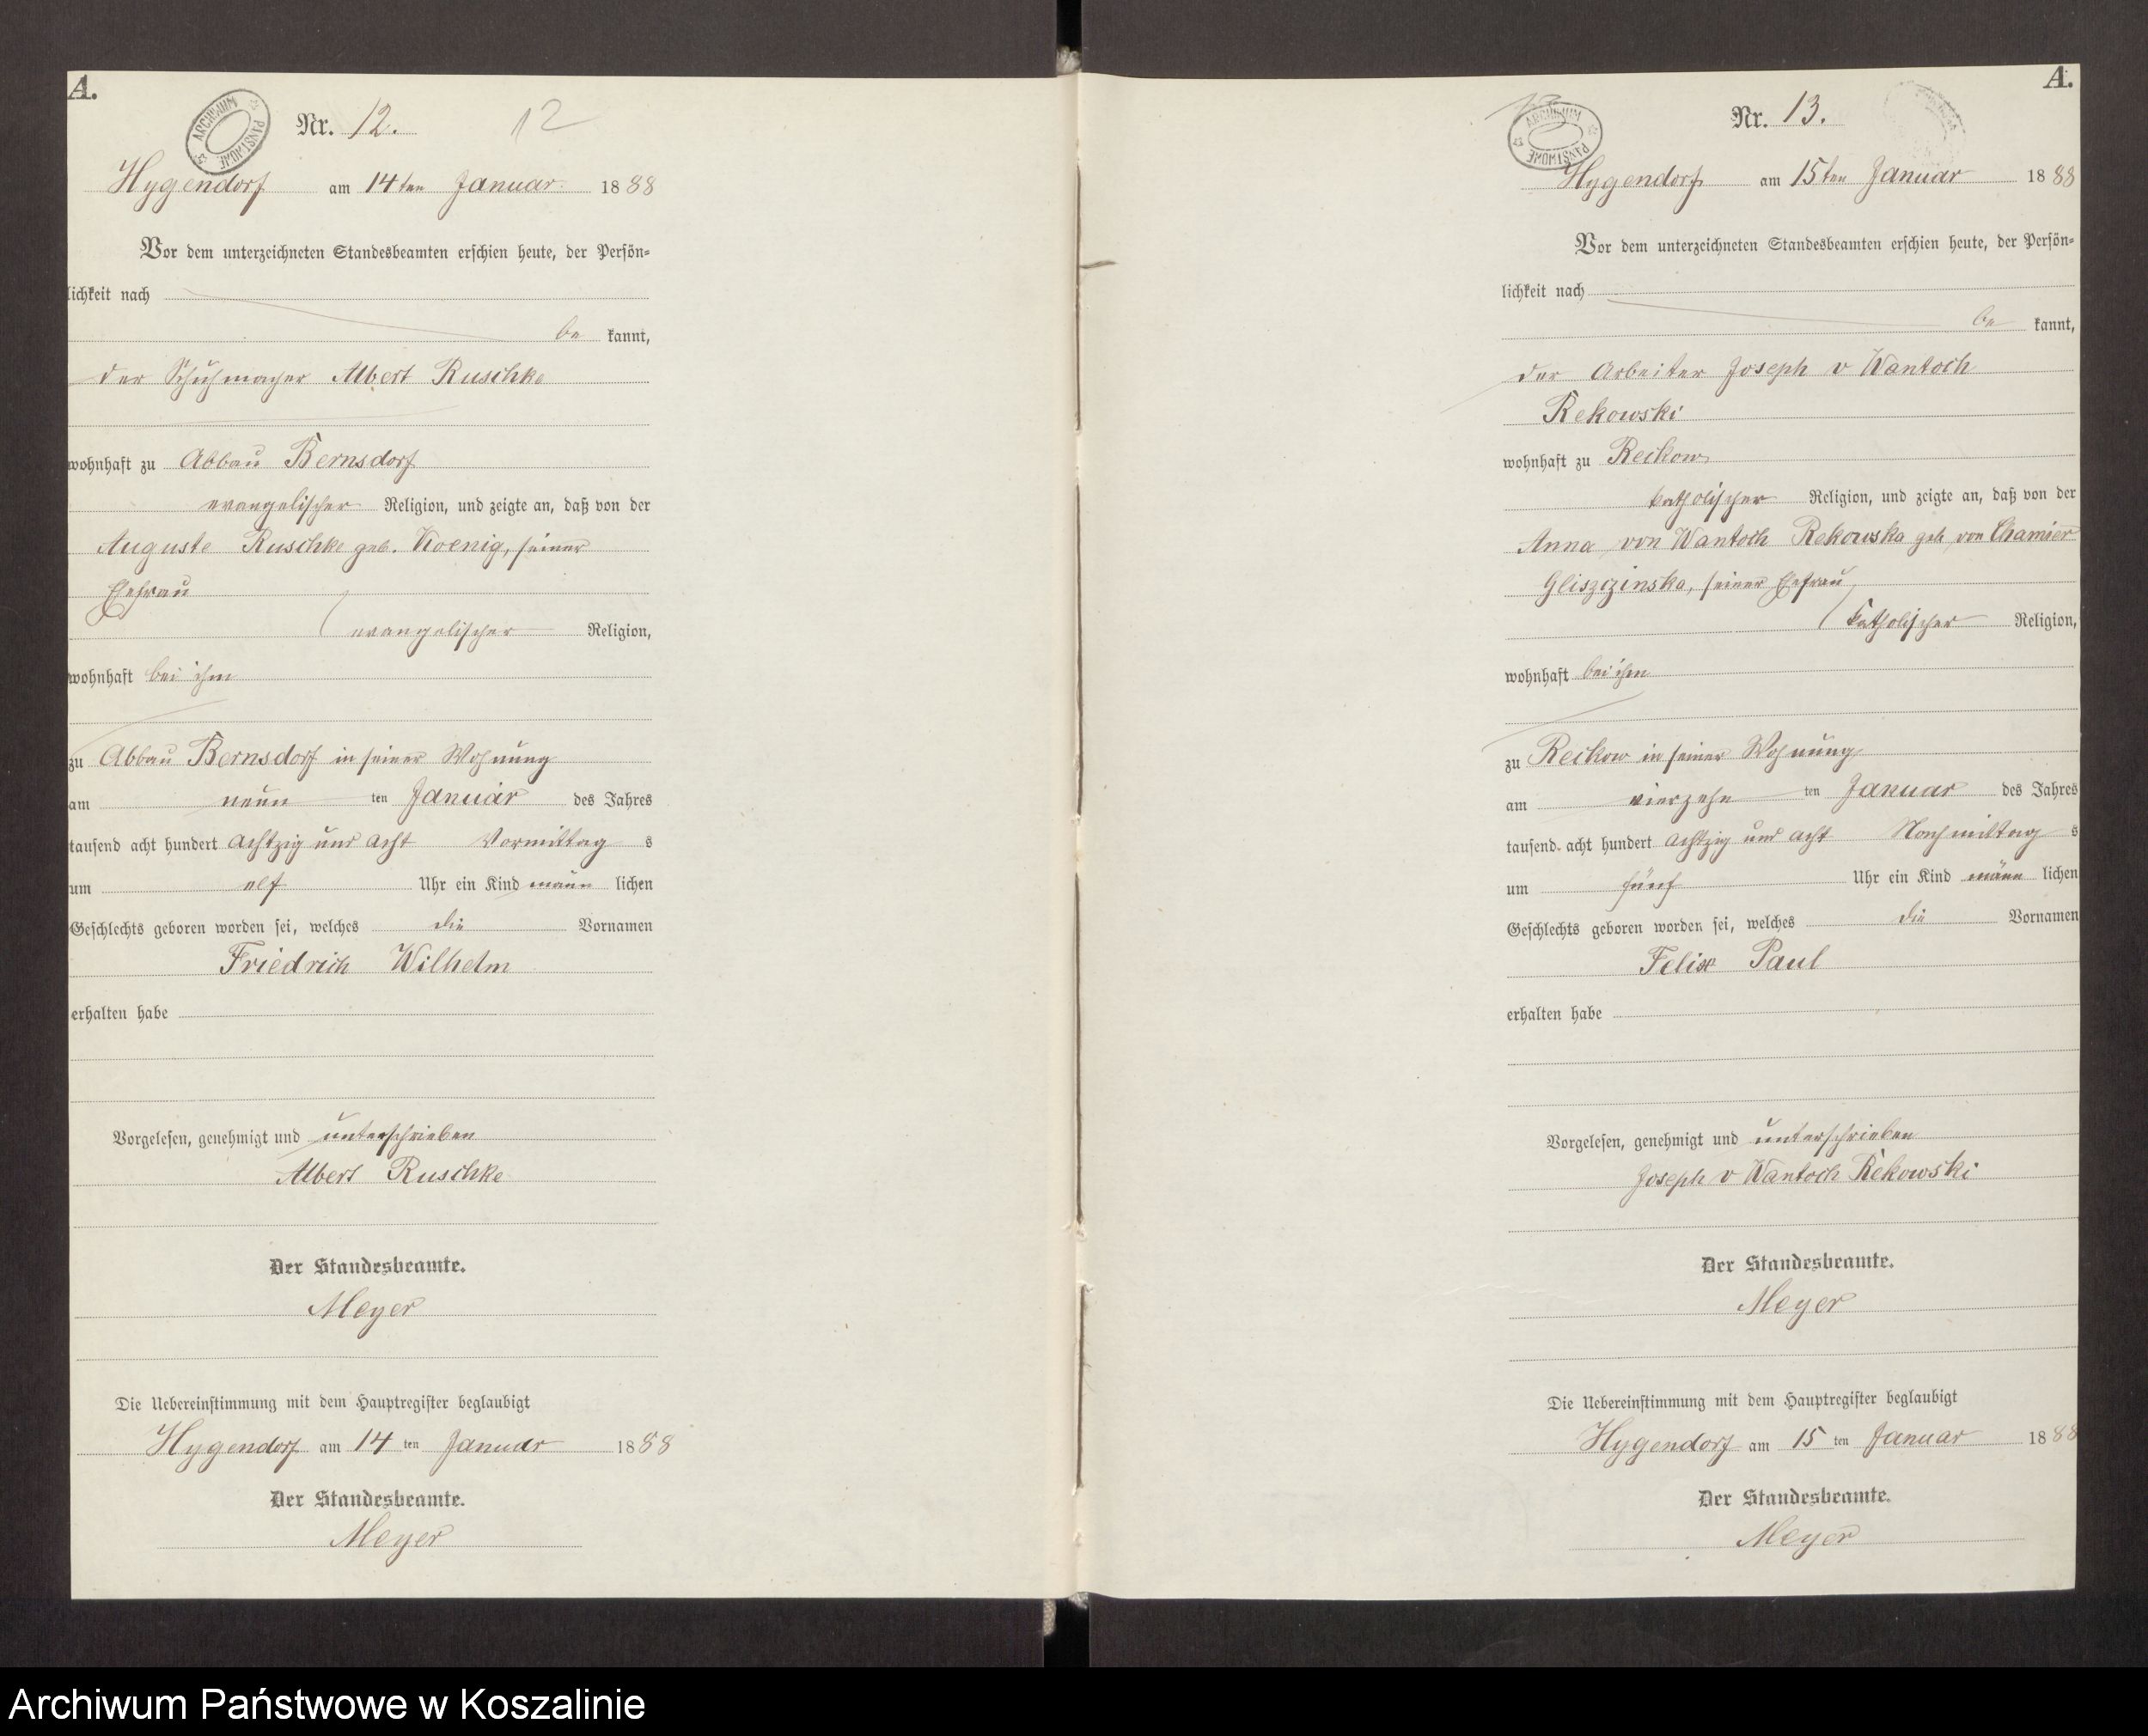 A.
ARCHIWUM PAŃSTWOWE
Nr. 12.
12
Hygendorf am 14ten Januar 1888
Vor dem unterzeichneten Standesbeamten erschien heute, der Persön-
lichkeit nach
be kannt,
der Schuhmacher Albert Ruschke
wohnhaft zu Abbau Bernsdorf
evangelischer Religion, und zeigte an, daß von der
Auguste Ruschke geb. Koenig, seiner
Ehefrau
evangelischer Religion,
wohnhaft bei ihm
zu Abbau Bernsdorf in seiner Wohnung
am neun ten Januar des Jahres
tausend acht hundert achtzig und acht Vormittag s
um elf Uhr ein Kind männ lichen
Geschlechts geboren worden sei, welches die Vornamen
Friedrich Wilhelm
erhalten habe
Vorgelesen, genehmigt und unterschrieben
Albert Ruschke
Der Standesbeamte.
Meyer
Die Uebereinstimmung mit dem Hauptregister beglaubigt
Hygendorf am 14 ten Januar 1888
Der Standesbeamte.
Meyer
A.
13
ARCHIWUM PAŃSTWOWE
Nr. 13.
Hygendorf am 15ten Januar 1888
Vor dem unterzeichneten Standesbeamten erschien heute, der Persön-
lichkeit nach
be kannt,
der Arbeiter Joseph v Wantoch
Rekowski
wohnhaft zu Reckow
katholischer Religion, und zeigte an, daß von der
Anna von Wantoch Rekowska geb von Chamier
Gliszczinska, seiner Ehefrau
katholischer Religion,
wohnhaft bei ihm
zu Reckow in seiner Wohnung
am vierzehn ten Januar des Jahres
tausend acht hundert achtzig und acht Nachmittag s
um fünf Uhr ein Kind männ lichen
Geschlechts geboren worden sei, welches die Vornamen
Felix Paul
erhalten habe
Vorgelesen, genehmigt und unterschrieben
Joseph v Wantoch Rekowski
Der Standesbeamte.
Meyer
Die Uebereinstimmung mit dem Hauptregister beglaubigt
Hygendorf am 15 ten Januar 1888
Der Standesbeamte.
Meyer
Archiwum Państwowe w Koszalinie